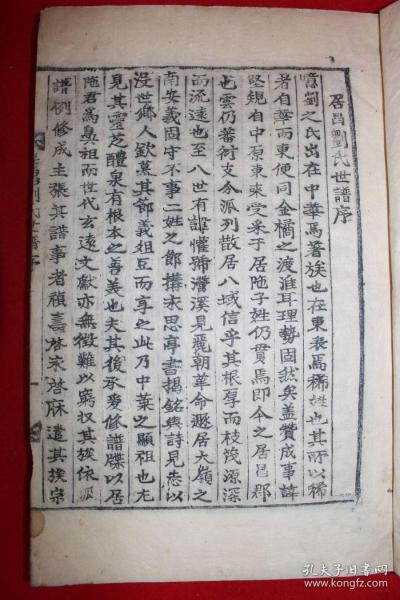 居昌劉氏世譜序
噫劉之氏出在中華爲著族也在東表爲稀姓也其所以稀
者自華而東便同金橘之渡淮耳理勢固然矣盖贊成事諱
堅規自中原東來受采于居陁子姓仍貫焉即今之居昌郡
也雲仍蕃衍支分派列散居八域信乎其根厚而枝茂源深
而流遠也至八世有諱懽號灆溪見麗朝革命遯居大嶺之
南安義固守不事二姓之節搆永思亭書揭銘與詩見志以
没世鄉人欽慕其節義俎豆而享之此乃中葉之顯祖也尤
見其靈芝醴泉有根本之善美也夫其後承麦修譜牒以居
陁君爲鼻祖而世代玄遠文獻亦無徵難以窮尋其挨依派
譜例修成主張其譜事者碩壽啓來啓庥遣其挨宗
孔夫子旧书网
www.kongfz.com